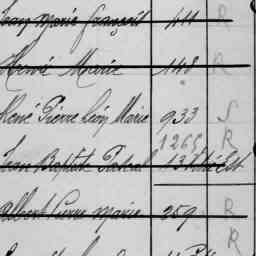 Jean Marie françois 411 R
Hervé Marie 148 R
René Pierre Léon Marie 933 S
1265 R
Jean Baptiste Pascal 13
Albert Pierre Marie 259 R
R